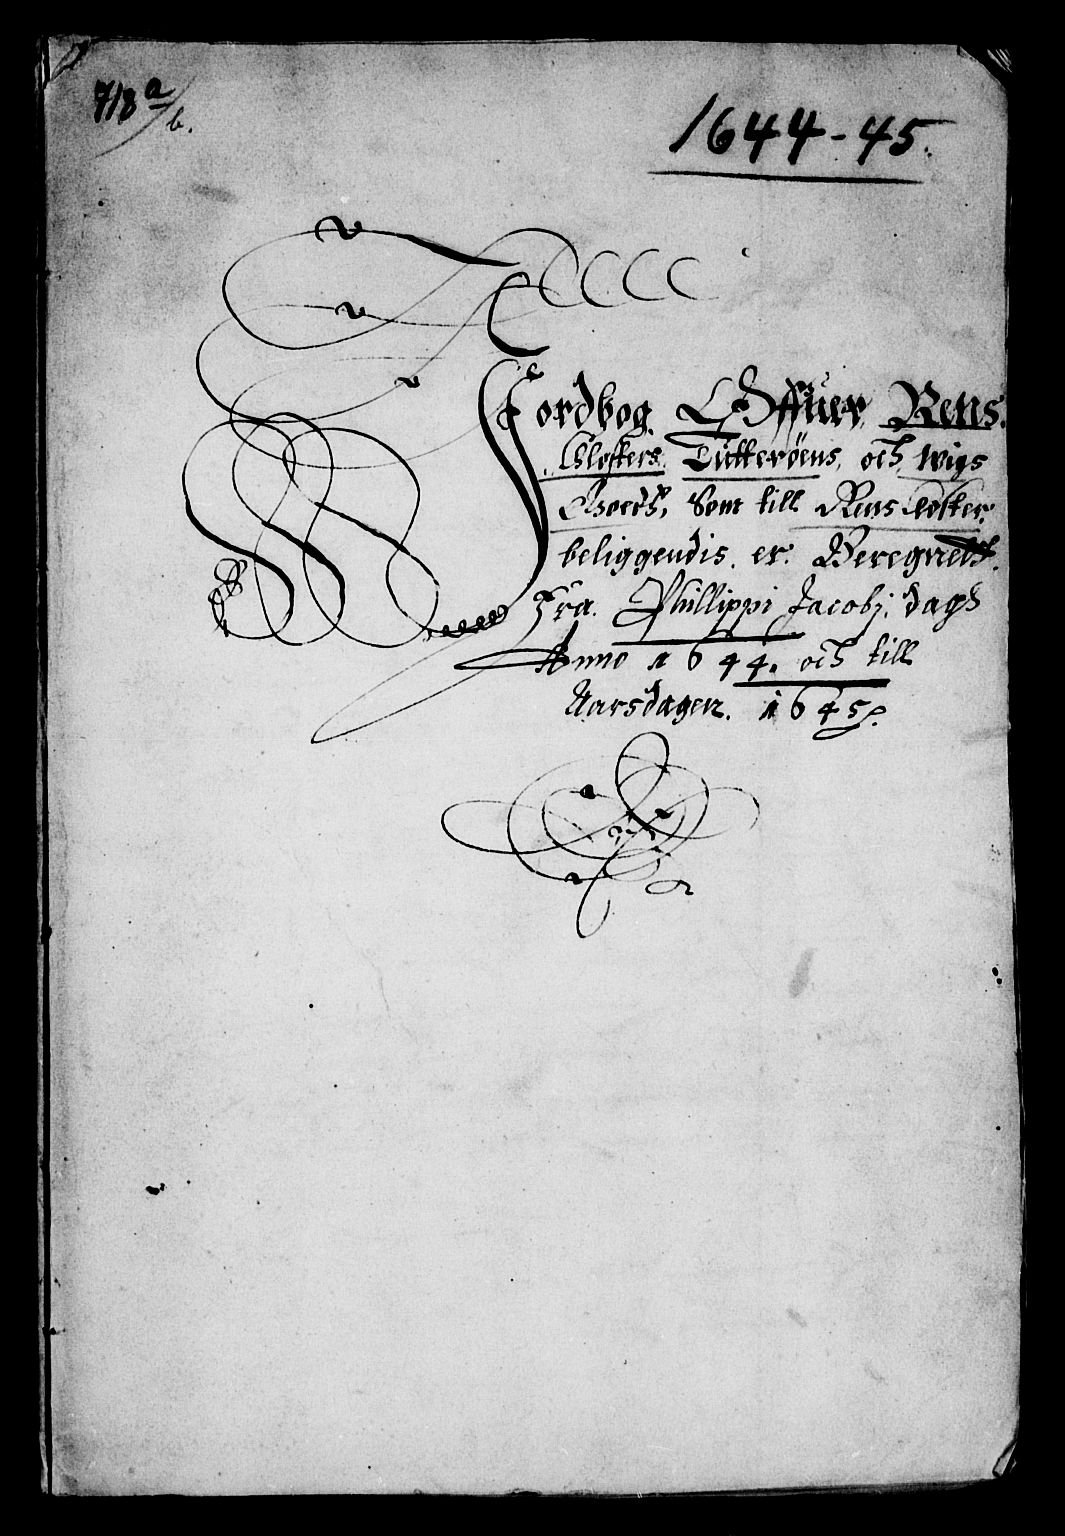 718 a/b.
1644-45.
Jordbog Offuer Rens
Closters, Tutterøens, och Wigs
Goeds, Som till Rens Closter
beliggendis. er. Beregnedt.
Fra. Phillippi Jacobj. dags
Anno 1644. och till
Aarsdagen. 1645.